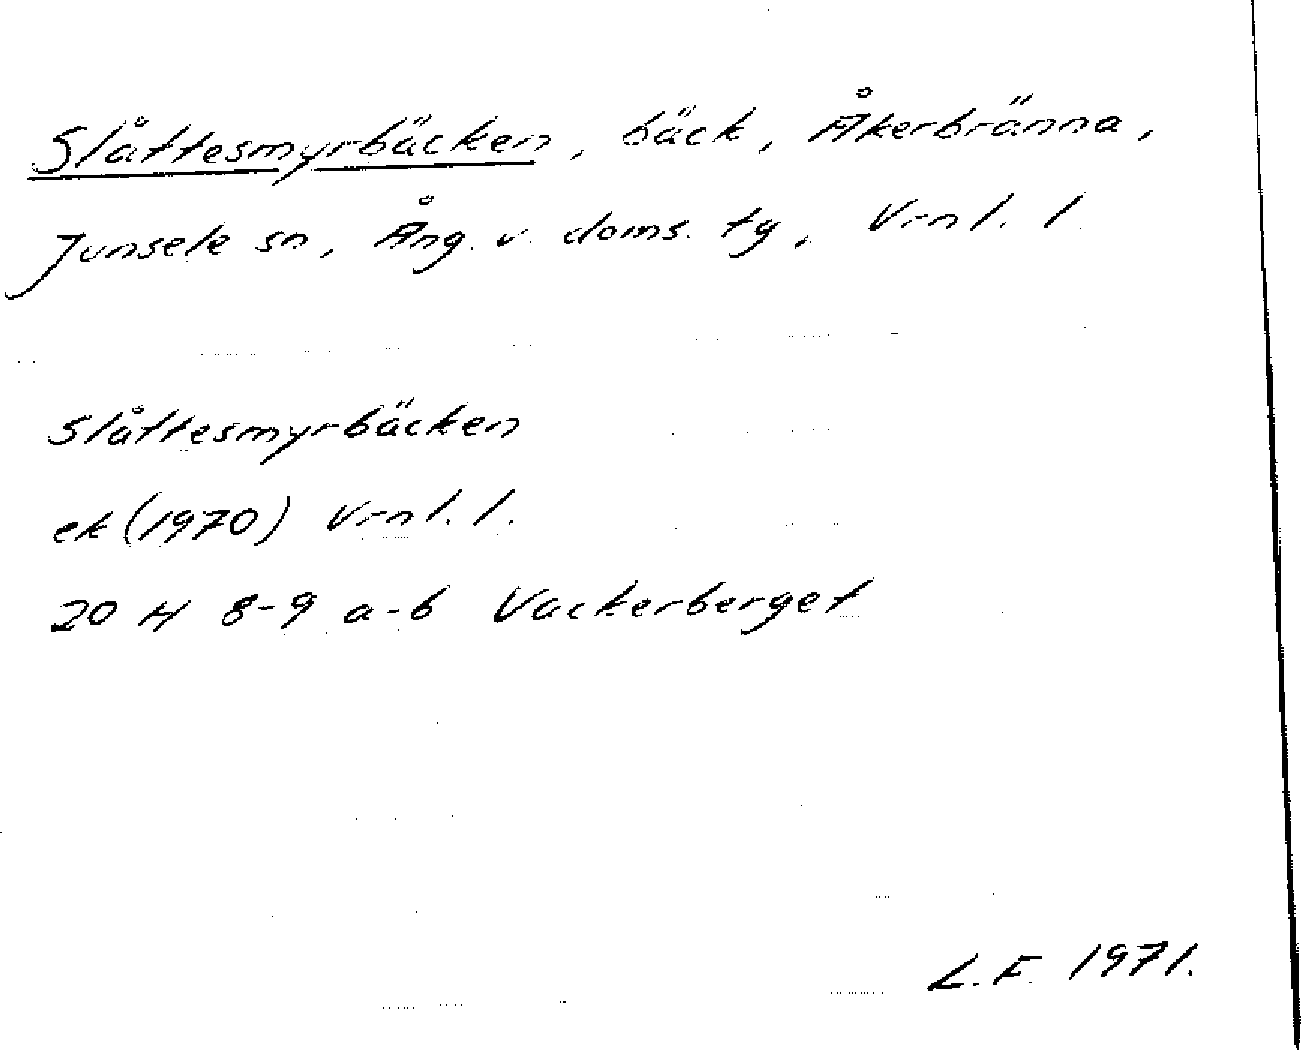 Slåttesmyrbäcken, bäck, Åkerbränna,
Junsele sn, Ång. v. doms. tg, Vrnl. l.
Slåttesmyrbäcken
ek (1970) Vrnl. l.
20 H 8-9 a-b Vackerberget
L.F. 1971.